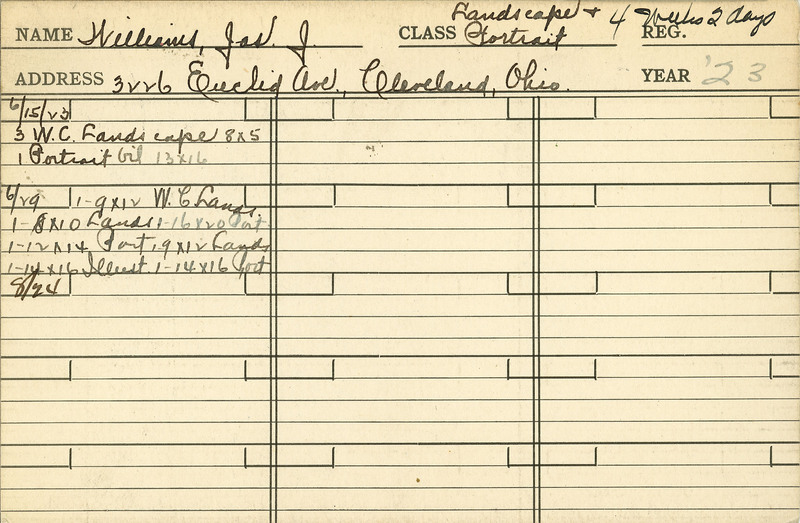 NAME Williams, Jas. J. CLASS Landscape + Portrait 4 Weeks 2 days REG.
ADDRESS 3226 Euclid Ave., Cleveland, Ohio. YEAR '23
6/15/23
3 W.C. Landscape 8x5
1 Portrait Oil 13x16
6/29 1-9x12 W.C Lands.
1-8x10 Lands 1-16x20 Port
1-12x14 Port 1-9x12 Lands
1-14x16 Illust. 1-14x16 Port
8/24